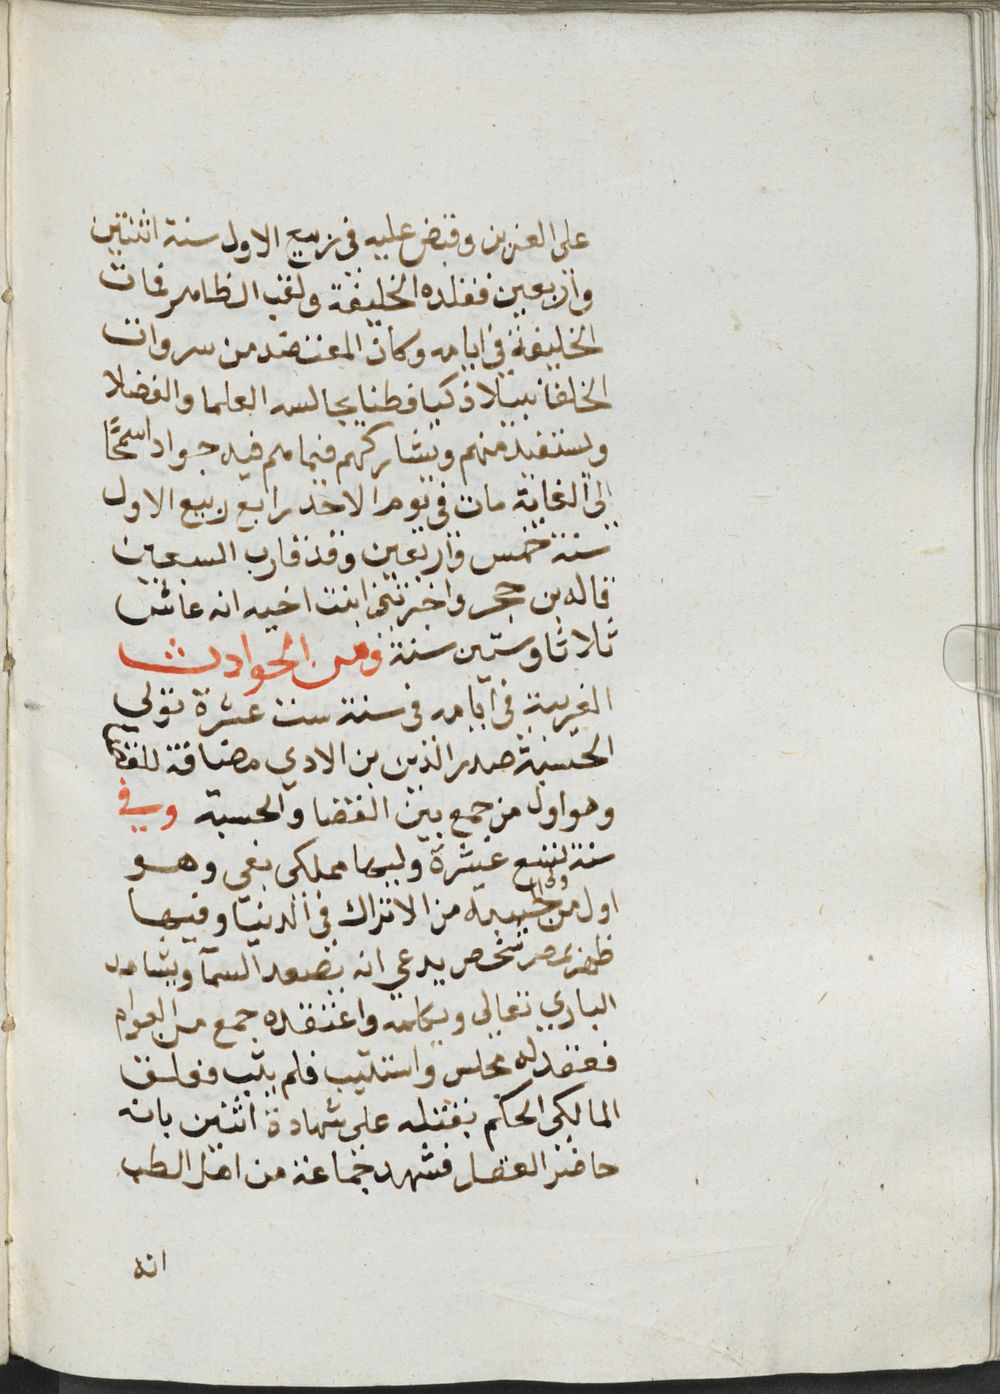 على العزيز وقبض عليه في ربيع الاول سنة اثنتين
واربعين فقلده الخليفة ولقب الظاهر فمات
الخليفة في ايامه وكان المعتضد من سروات
الخلفا نبيلا ذكيا فطنا يجالسه العلما والفضلا
ويستفيد منهم ويشاركهم فيما هم فيه جوادا سمحًا
الى الغاية مات في يوم الاحد رابع ربيع الاول
سنة خمس واربعين وقد قارب السبعين
قاله بن حجر واخبرتني ابنت اخيه انه عاش
ثلاثا وستين سنة ومن الحوادث
الغريبة في ايامه في سنة ست عشرة تولي
الحسبة صدر الدين بن الادمي مضافة للقضا
وهو اول من جمع بين القضا والحسبة وفي
سنة تسع عشرة وليها منكلي بغي وهو
اول من ولي الحسبة من الاتراك في الدنيا وفيها
ظهر بمصر شخص يدعي انه يصعد السمآ ويشاهد
الباري تعالي ويكلمه واعتقده جمع من العوام
فعقد له مجلس واستتيب فلم يتب فعلق
المالكي الحكم بقتله على شهادة اثنين بانه
حاضر العقل فشهد جماعة من اهل الطب
انه